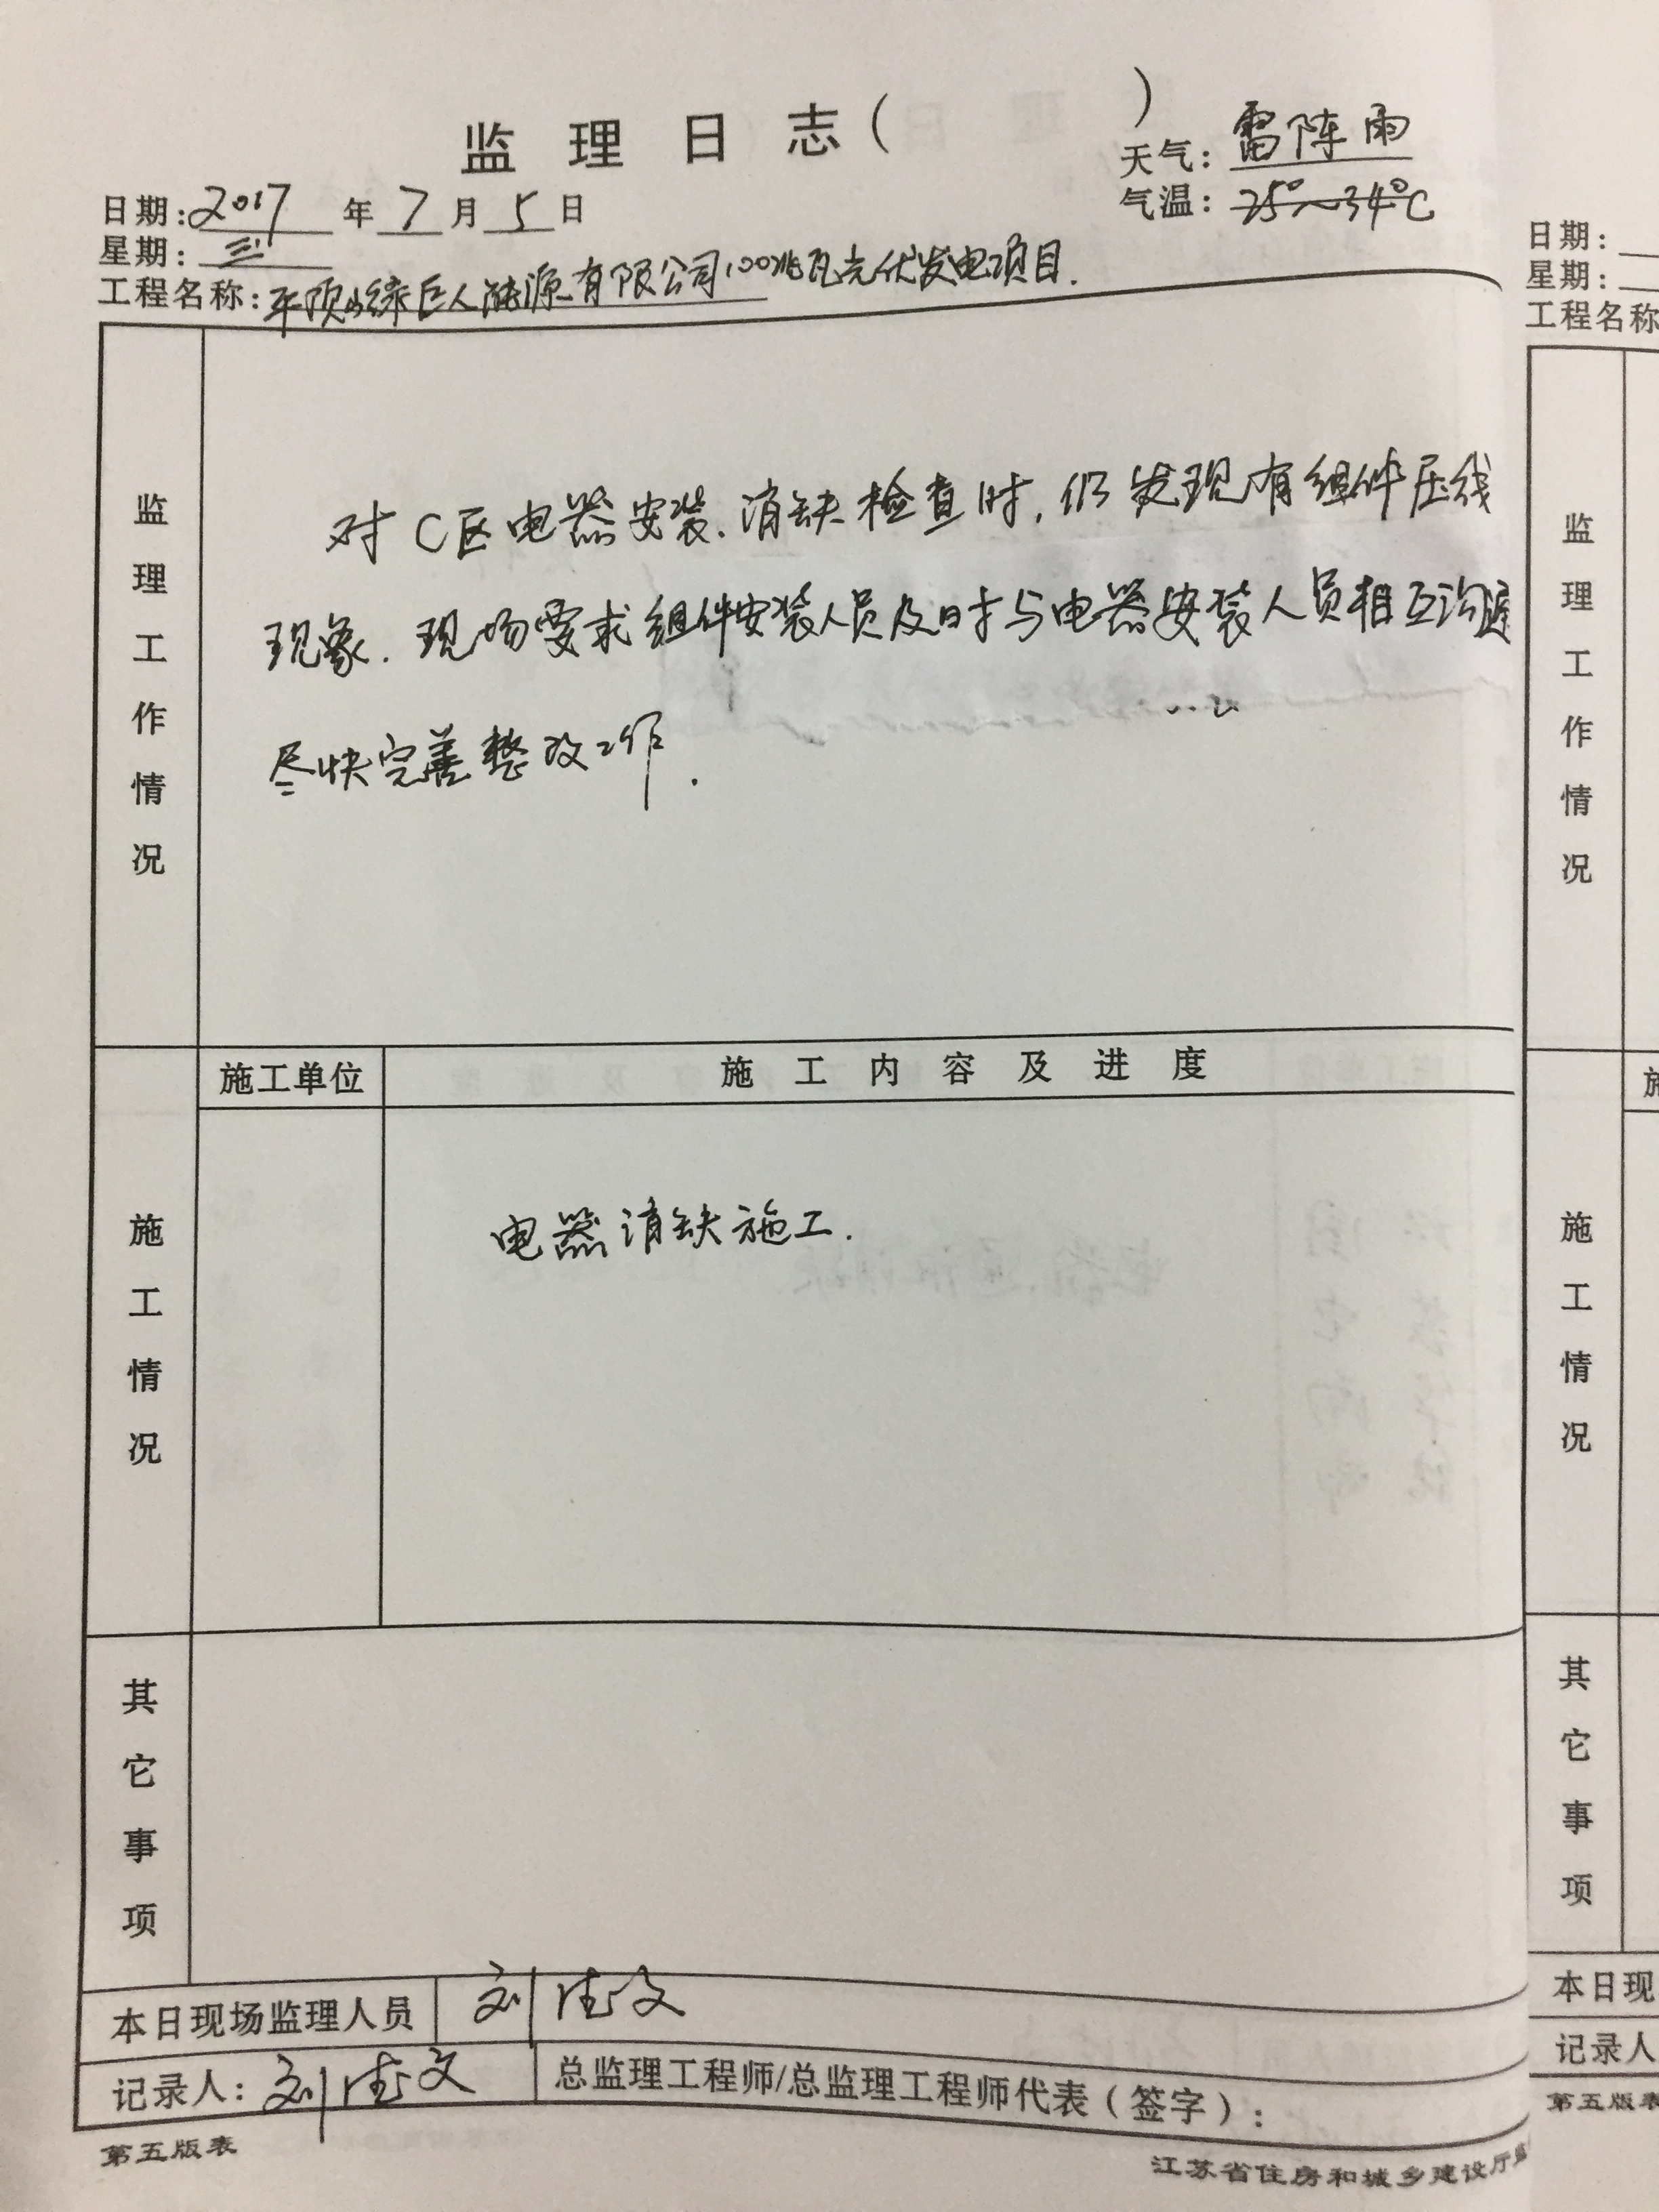 监理日志（ ）
天气：雷阵雨
日期：2017年7月5日
气温：25°～34°C
星期：三
工程名称：平顶山绿巨人能源有限公司100兆瓦光伏发电项目.
监理工作情况
对C区电器安装.消缺检查时,仍发现有组件压线
现象.现场要求组件安装人员及时与电器安装人员相互沟通
尽快完善整改工作.
施工单位 施工内容及进度
施工情况
电器消缺施工.
其它事项
本日现场监理人员 刘
记录人：刘 总监理工程师/总监理工程师代表（签字）：
第五版表 江苏省住房和城乡建设厅
日期：
星期：
工程名称
监理工作情况
施工情况
其它事项
本日现
记录人
第五版表